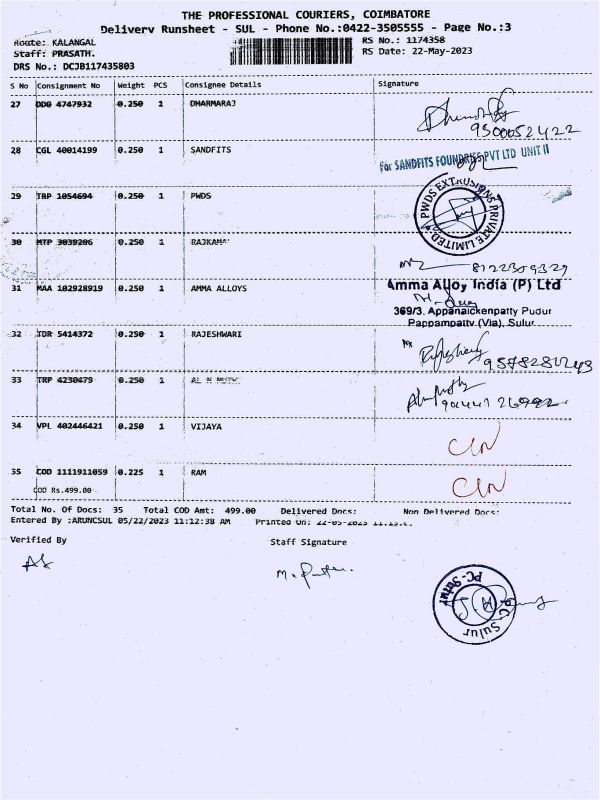 THE PROFESSIONAL COURIERS, COIMBATORE
Delivery Runsheet - SUL - Phone No.:0422-3505555 - Page No.:3
Route: KALANGAL
RS No.: 1174358
Staff: PRASATH.
RS Date: 22-May-2023
DRS No.: DCJB117435803
S No Consignment No Weight PCS Consignee Details Signature
27 DDG 4747932 0.250 1 DHARMARAJ
9500052422
28 CGL 40014199 0.250 1 SANDFITS
For SANDFITS FOUNDRIES PVT LTD UNIT II
29 TRP 1054694 0.250 1 PWDS
PWDS EXTRUSIONS PRIVATE LIMITED
30 MTP 3039206 0.250 1
31 MAA 102928919 0.250 1 AMMA ALLOYS
Amma Alloy India (P) Ltd
369/3, Appanaickenpatty Pudur
Pappampatty (Via), Sulur
32 TDR 5414372 0.250 1 RAJESHWARI
33 TRP 4230479 0.250 1
34 VPL 402446421 0.250 1 VIJAYA
35 COD 1111911059 0.225 1 RAM
COD Rs.499.00
Total No. Of Docs: 35 Total COD Amt: 499.00 Delivered Docs: Non Delivered Docs:
Entered By :ARUNCSUL 05/22/2023 11:12:38 AM Printed On: 22-05-2023
Verified By
Staff Signature
P.C. Sulur